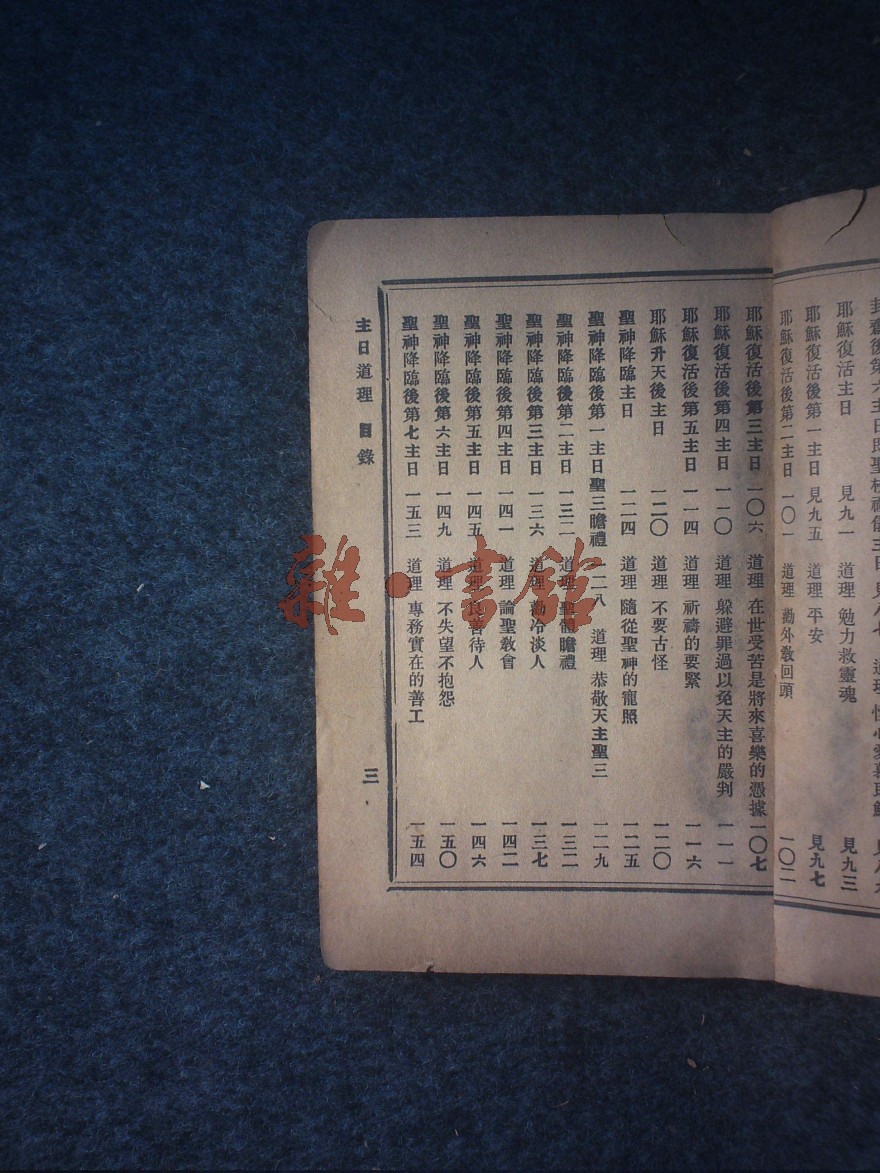 封齋後第六主日即聖枝禮儀主日 見八七 道理
耶穌復活主日 見九一 道理 勉力救靈魂 見九三
耶穌復活後第一主日 見九五 道理 平安 見九七
耶穌復活後第二主日 一〇一 道理 勸外敎回頭 一〇二
耶穌復活後第三主日 一〇六 道理 在世受苦是將來喜樂的憑據 一〇七
耶穌復活後第四主日 一一〇 道理 躱避罪過以免天主的嚴判 一一一
耶穌復活後第五主日 一一四 道理 祈禱的要緊 一一六
耶穌升天後主日 一二〇 道理 不要古怪 一二〇
聖神降臨主日 一二四 道理 隨從聖神的寵照 一二五
聖神降臨後第一主日聖三瞻禮 一二八 道理 恭敬天主聖三 一二九
聖神降臨後第二主日 一三二 道理 聖體瞻禮 一三二
聖神降臨後第三主日 一三六 道理 勸冷淡人 一三七
聖神降臨後第四主日 一四一 道理 論聖敎會 一四二
聖神降臨後第五主日 一四五 道理 良善待人 一四六
聖神降臨後第六主日 一四九 道理 不失望不抱怨 一五〇
聖神降臨後第七主日 一五三 道理 專務實在的善工 一五四
主日道理 目錄 三
雜·書館